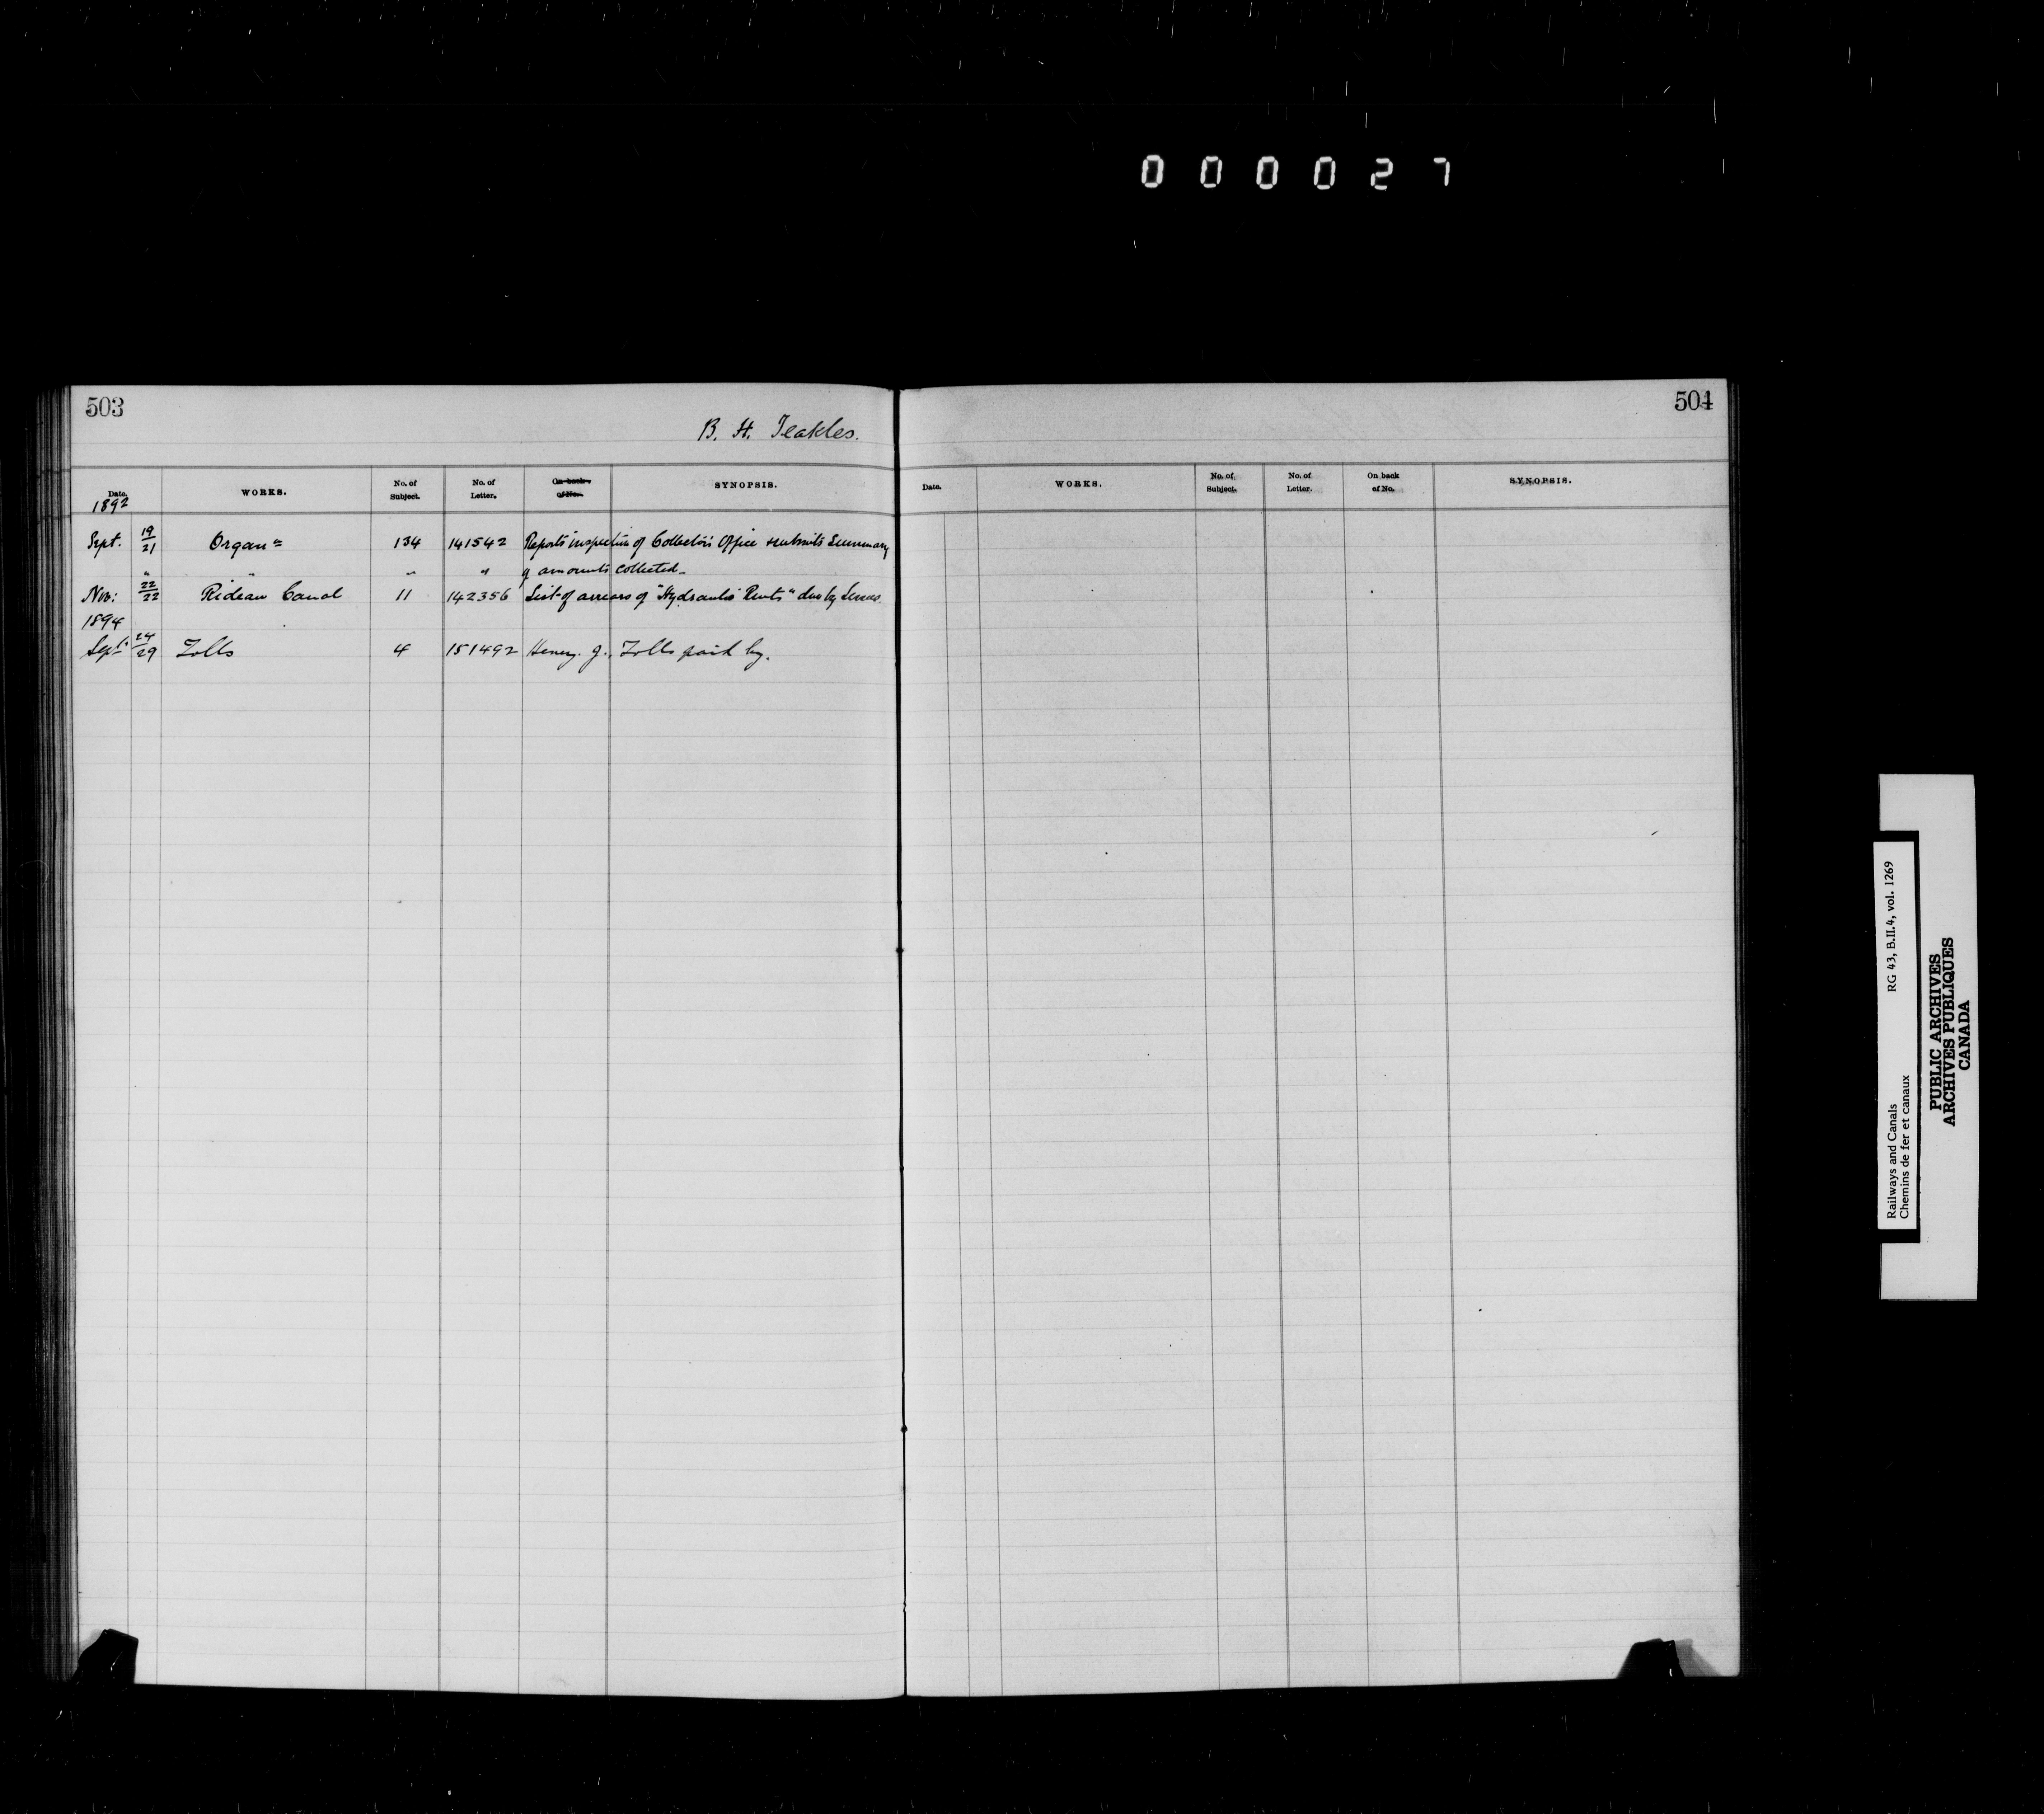 000027
503
B. H. Teakles.
Date. WORKS. No. of Subject. No. of Letter. On back of No. SYNOPSIS.
1892
Sept. 19/21 Organ" 134 141542 Reports inspection of Collector's Office & submits Summary
" " " " of amounts collected_
Nov: 22/22 Rideau Canal 11 142356 List of arrears of "Hydraulic Rents" due by Lessees
1894
Sept. 24/29 Tolls 4 151492 Henry. J., Tolls paid by.
504
Date. WORKS. No. of Subject. No. of Letter. On back of No. SYNOPSIS.
Railways and Canals RG 43, B.II.4, vol. 1269
Chemins de fer et canaux
PUBLIC ARCHIVES
ARCHIVES PUBLIQUES
CANADA